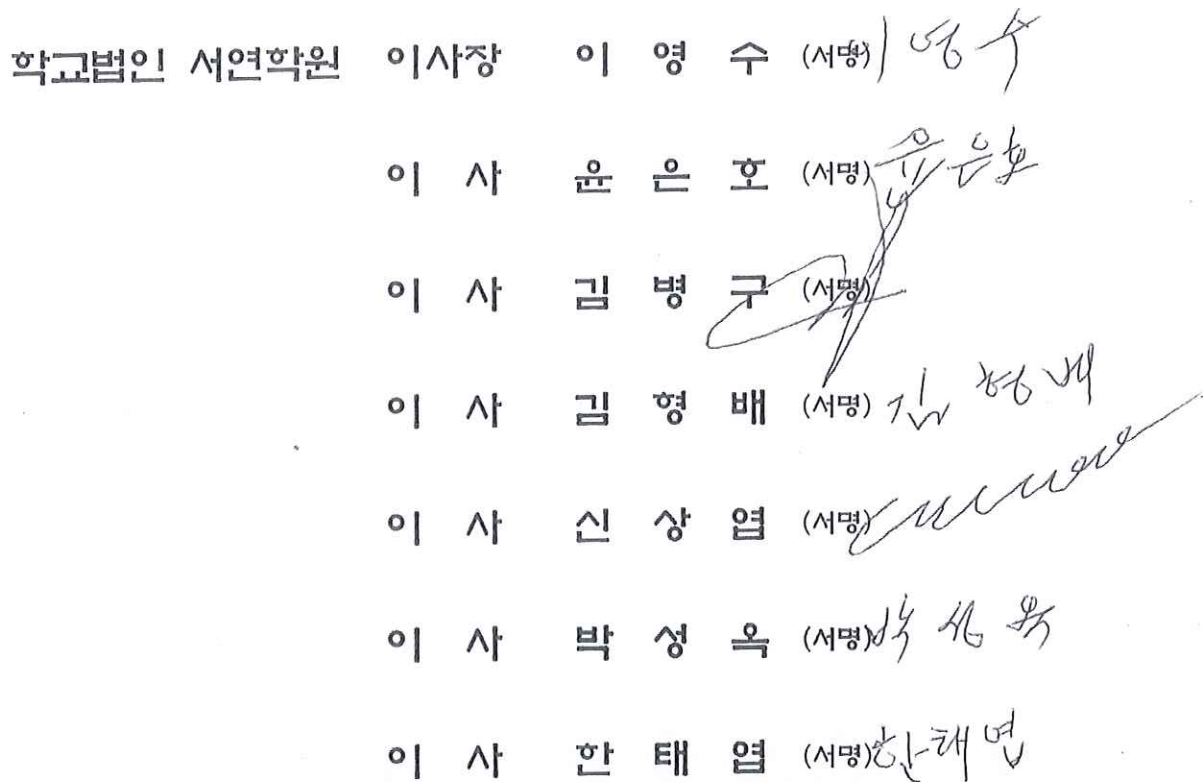 학교법인 서연학원 이사장 이 영 수 (서명) 이 영 수
이 사 윤 은 호 (서명) 윤 은 호
이 사 김 병 구 (서명)
이 사 김 형 배 (서명) 김 형 배
이 사 신 상 엽 (서명)
이 사 박 성 옥 (서명) 박 성 옥
이 사 한 태 엽 (서명) 한 태 엽